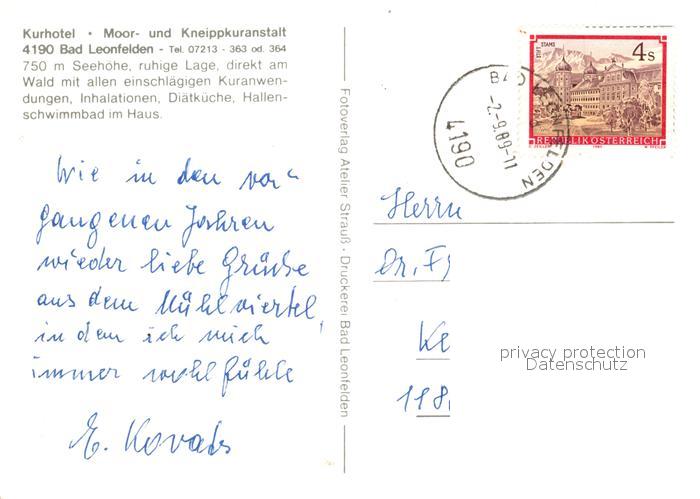 Kurhotel • Moor- und Kneippkuranstalt
4190 Bad Leonfelden - Tel. 07213 - 363 od. 364
750 m Seehöhe, ruhige Lage, direkt am
Wald mit allen einschlägigen Kuranwen-
dungen, Inhalationen, Diätküche, Hallen-
schwimmbad im Haus.
Wie in den vor-
gangenen Jahren
wieder liebe Grüße
aus dem Mühlviertel,
in dem ich mich
immer wohl fühle
E. Kovats
Fotoverlag Atelier Strauß · Druckerei Bad Leonfelden
BAD LEONFELDEN
-2.-9.89-11
4190
STIFT STAMS
4 S
REPUBLIK ÖSTERREICH
Herrn
Dr. F
Ke
118
privacy protection
Datenschutz